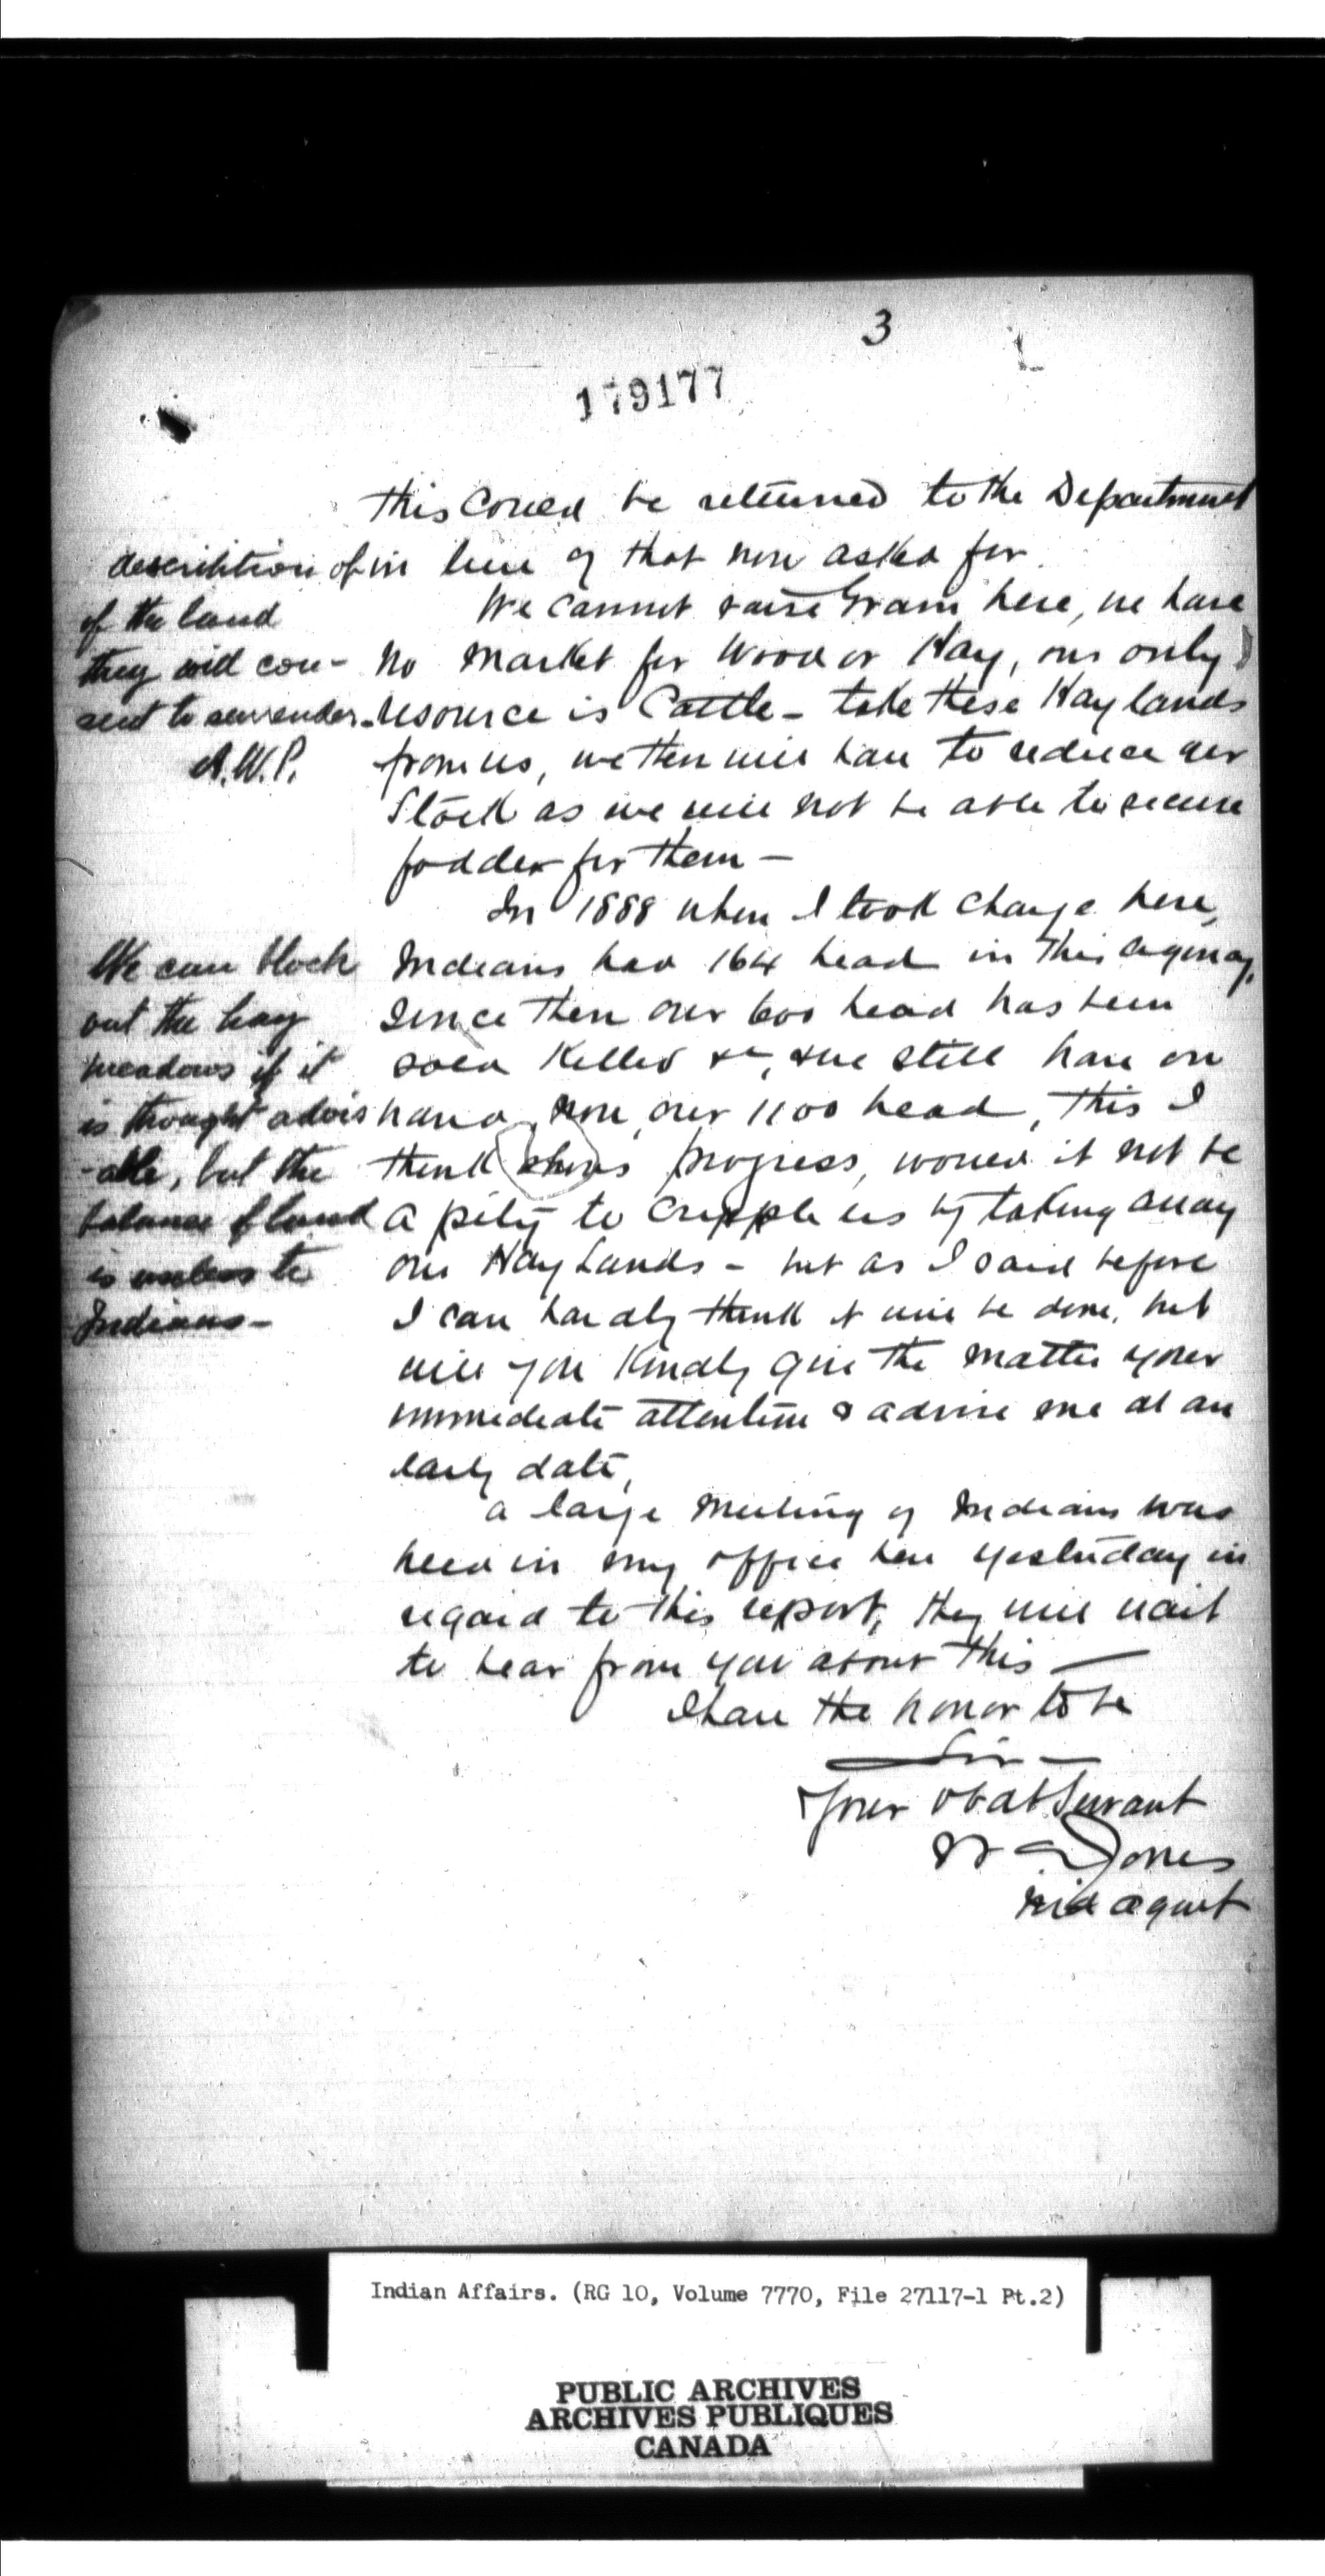 3
179177
this could be returned to the Department
in lieu of that now asked for.
We cannot raise Grain here, we have
no market for Wood or Hay, our only
resource is Cattle – take these Hay lands
from us, we then will have to reduce our
Stock as we will not be able to secure
fodder for them –
In 1888 when I took charge here,
Indians had 164 head in this agency,
since then over 600 head has been
sold Killed &c, & we still have on
hand, now, over 1100 head, this I
think shows progress, would it not be
a pity to cripple us by taking away
our Hay Lands – but as I said before
I can hardly think it will be done, but
will you Kindly give the matter your
immediate attention & advise me at an
early date,
a large meeting of Indians was
held in my office here yesterday in
regard to this report, they will wait
to hear from you about this —
I have the honor to be
Sir –
Your obdt Servant
Jones
Ind agent
description of
of the land
they will con-
sent to surrender.
A.W.P.
We can block
out the hay
meadows if it
is thought advis
-able, but the
balance of land
is useless to
Indians –
Indian Affairs. (RG 10, Volume 7770, File 27117-1 Pt.2)
PUBLIC ARCHIVES
ARCHIVES PUBLIQUES
CANADA